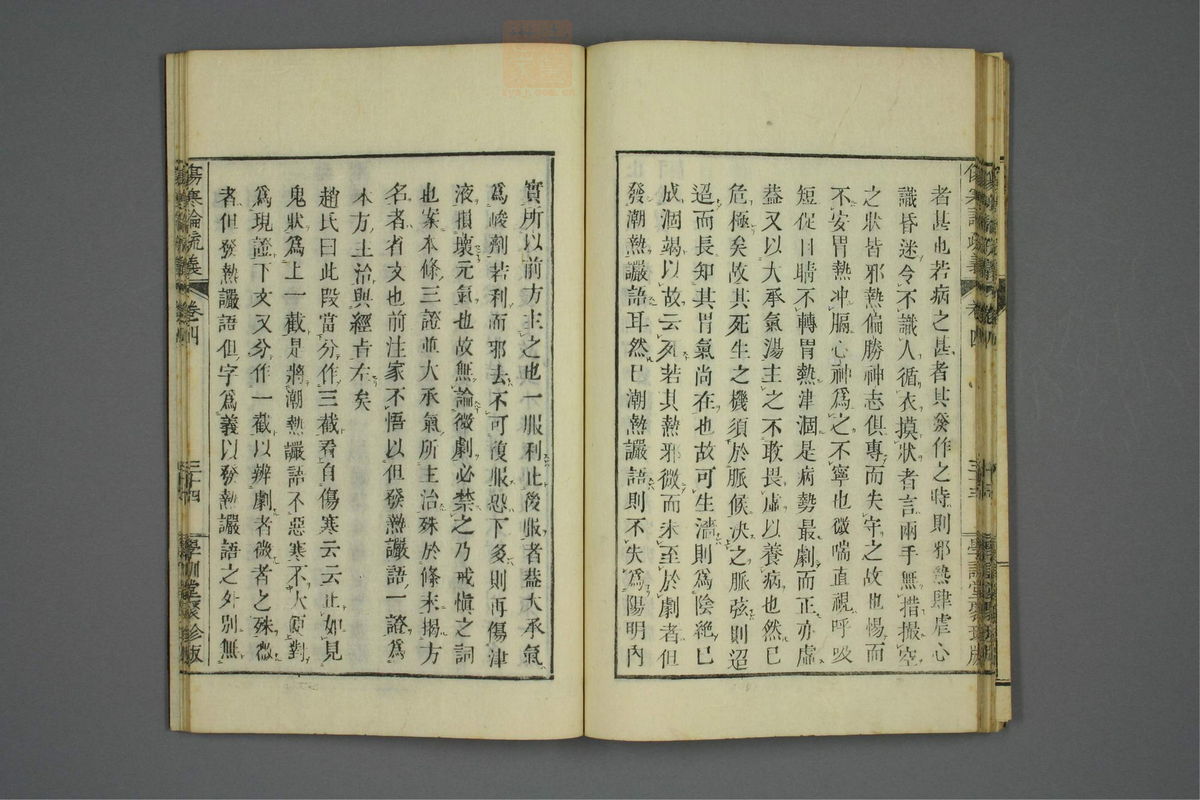 者甚也若病之甚者其發作之時則邪熱肆虐心
識昏迷令不識人循衣摸狀者言兩手無措撮空
之狀皆邪熱偏勝神志俱專而失守之故也惕而
不安胃熱冲膈心神爲之不寧也微喘直視呼吸
短促目睛不轉胃熱津涸是病勢最劇而正亦虛
蓋又以大承氣湯主之不敢畏虛以養病也然已
危極矣故其死生之機須於脈候决之脈弦則迢
迢而長知其胃氣尚在也故可生濇則爲陰絶已
成涸竭以故云死若其熱邪微而未至於劇者但
發潮熱讝語耳然已潮熱讝語則不失爲陽明內
實所以前方主之也一服利止後服者蓋大承氣
爲峻劑若利而邪去不可復服恐下多則再傷津
液損壞元氣也故無論微劇必禁之乃戒愼之詞
也案本條三證並大承氣所主治殊於條末揭方
名者省文也前注家不悟以但發熱讝語一證爲
本方主治與經旨左矣
趙氏曰此段當分作三截看自傷寒云云止如見
鬼狀爲上一截是將潮熱讝語不惡寒不大便對
爲現證下文又分作一截以辨劇者微者之殊微
者但發熱讝語但字爲義以發熱讝語之外別無
傷寒論疏義 卷四 三十四 學訓堂聚珍版